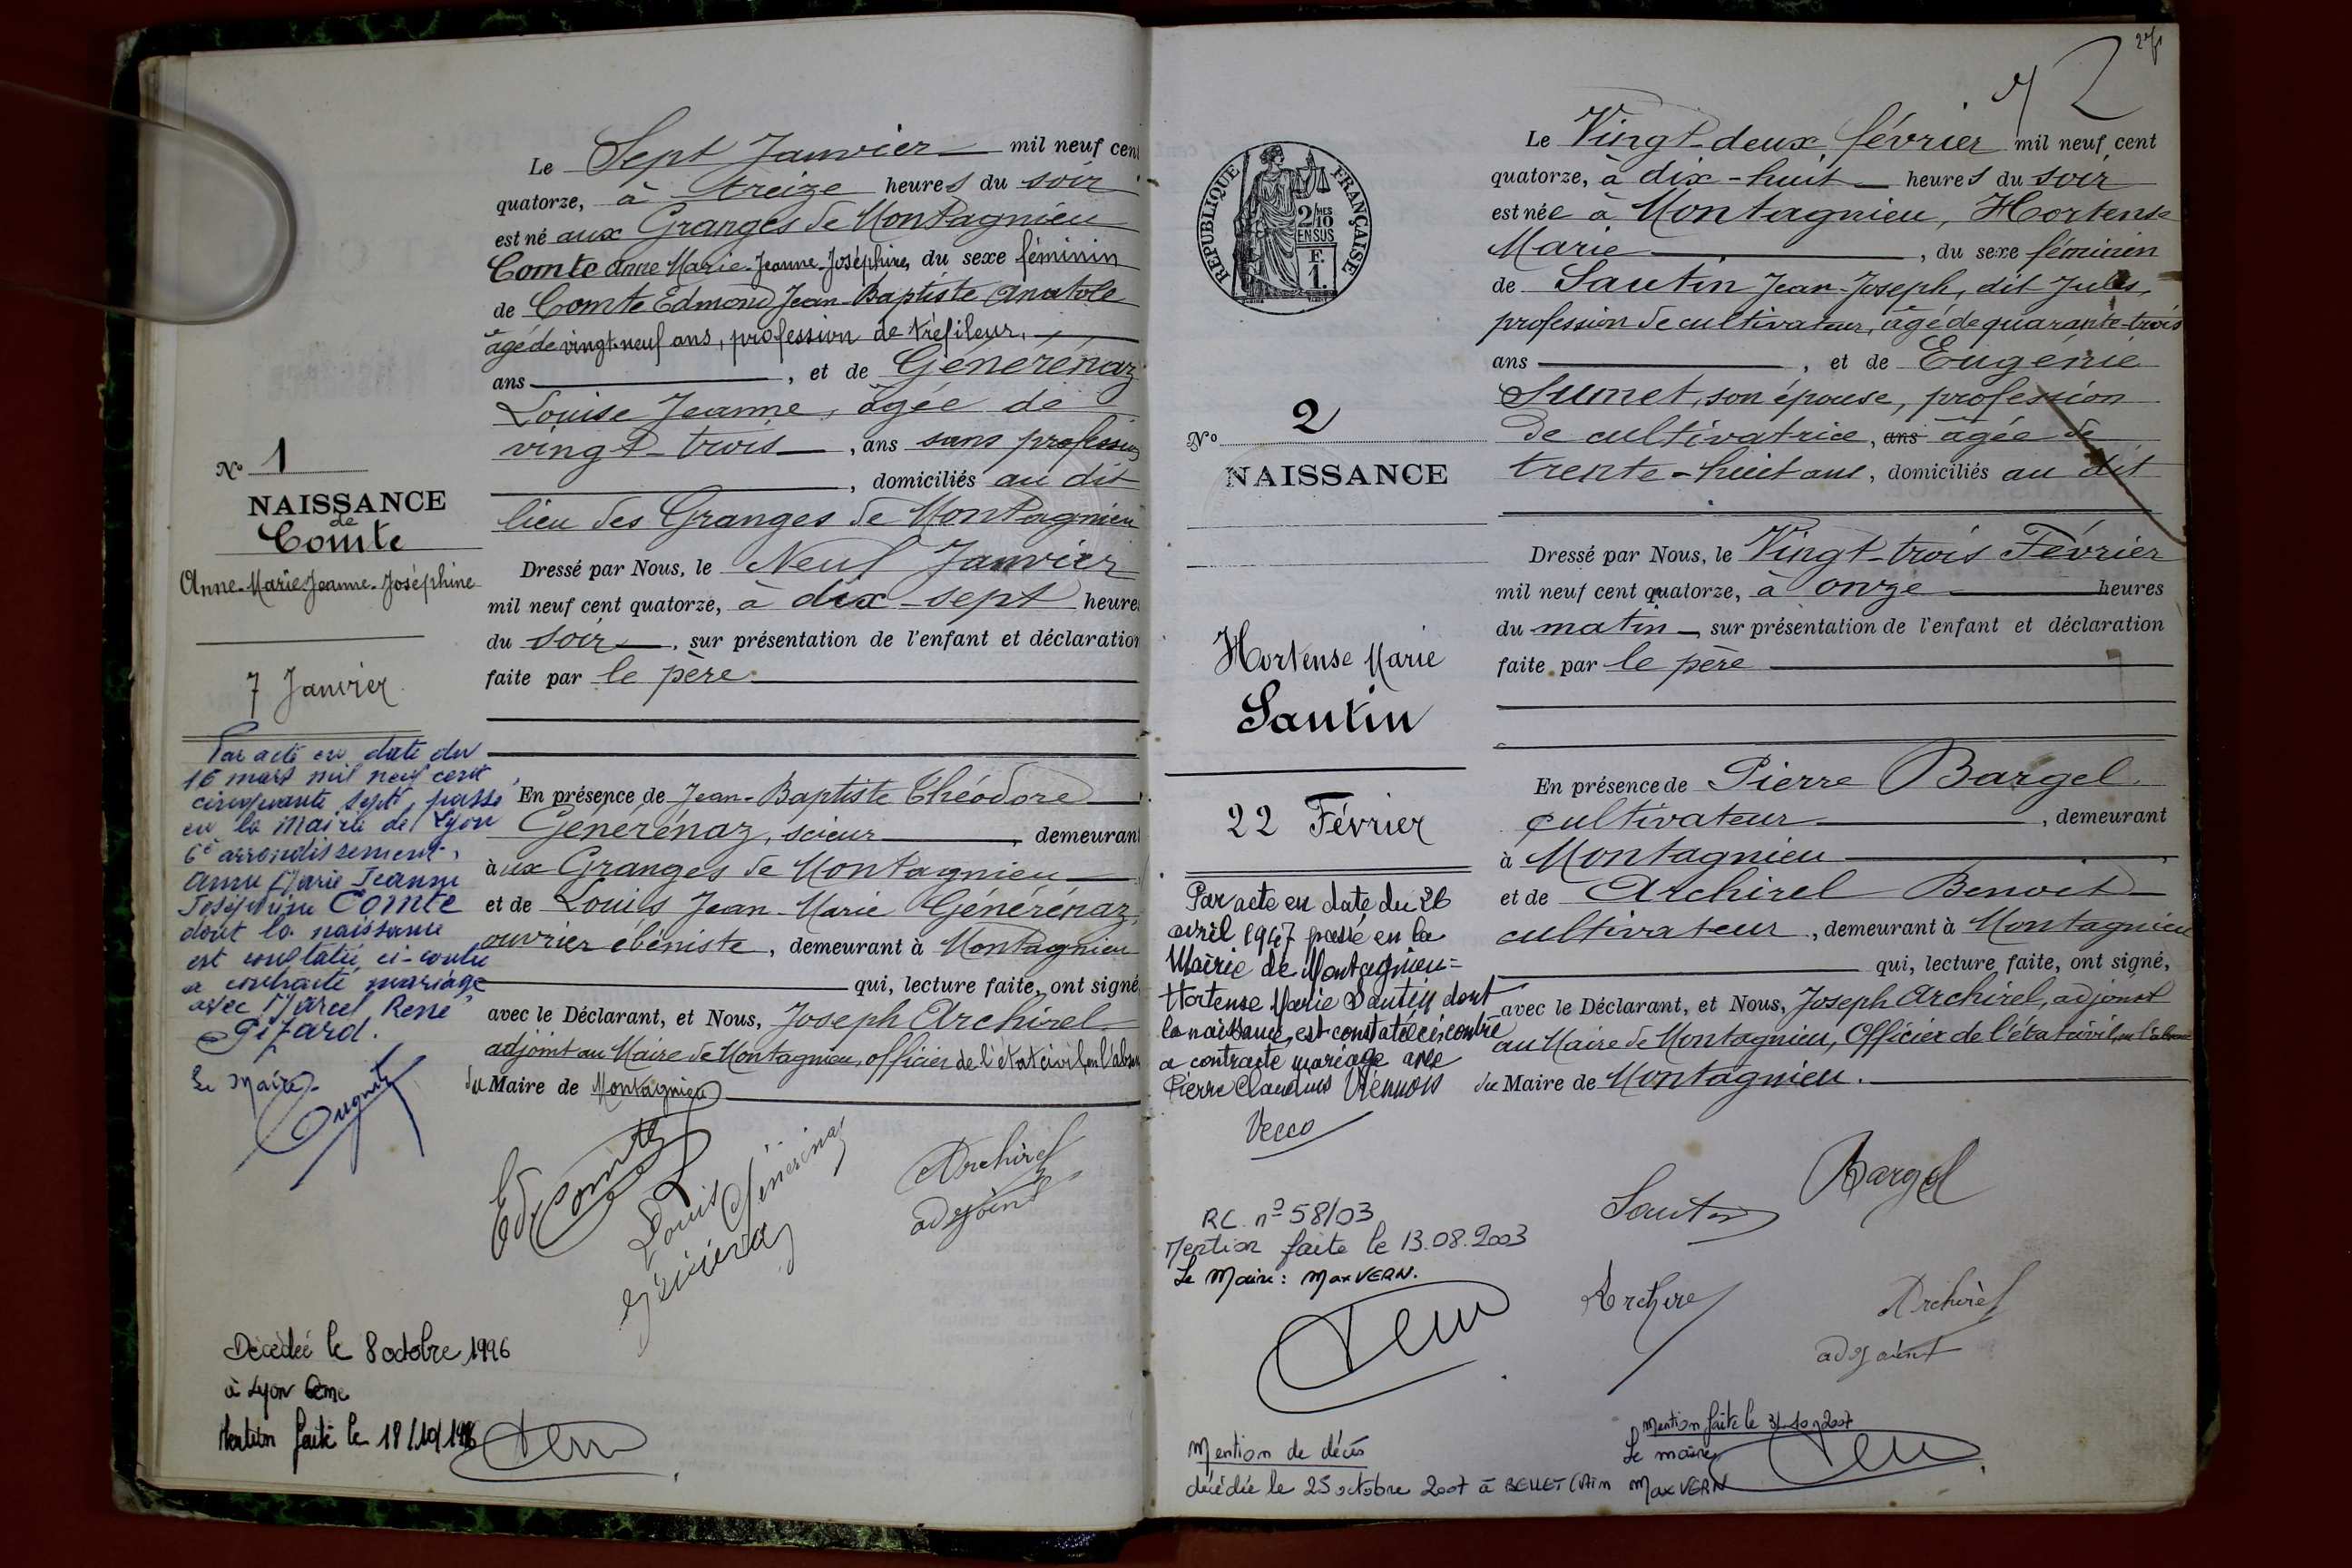 Le Sept Janvier mil neuf cent
quatorze, à treize heures du soir
est né aux Granges de Montagnieu
Comte Anne-Marie-Jeanne-Joséphine, du sexe féminin
de Comte Edmond Jean-Baptiste Anatole
âgé de vingt-neuf ans, profession de tréfileur,
ans, et de Génerénaz
Louise Jeanne, âgée de
vingt-trois, ans sans profession
, domiciliés au dit
lieu des Granges de Montagnieu
Dressé par Nous, le Neuf Janvier
mil neuf cent quatorze, à dix-sept heures
du soir, sur présentation de l'enfant et déclaration
faite par le père
En présence de Jean-Baptiste Théodore
Génerénaz, scieur, demeurant
à ux Granges de Montagnieu
et de Louis Jean-Marie Génerénaz,
ouvrier ébéniste, demeurant à Montagnieu
qui, lecture faite, ont signé,
avec le Déclarant, et Nous, Joseph Archirel
adjoint au Maire de Montagnieu, officier de l'état civil en l'absen
du Maire de Montagnieu
Ed. Comte
Louis Génerénaz
Génerénaz
Archirel
adjoint
No 1
NAISSANCE
de
Comte
Anne-Marie-Jeanne-Joséphine
7 Janvier
Par acte en date du
16 mars mil neuf cent
cinquante sept, passé
en la Mairie de Lyon
6e arrondissement,
Anne Marie Jeanne
Joséphine Comte
dont la naissance
est constatée ci-contre
a contracté mariage
avec Marcel René
Pizard.
Le Maire
Décédée le 8 octobre 1996
à Lyon 6eme
Mention faite le 18/10/1996
2
Le Vingt-deux février mil neuf cent
quatorze, à dix-huit heures du soir
est née à Montagnieu, Hortense
Marie, du sexe féminin
de Santin Jean-Joseph, dit Jules,
profession de cultivateur, âgé de quarante-trois
ans, et de Eugénie
Sumet, son épouse, profession
de cultivatrice, ans âgée de
trente-huit ans, domiciliés au dit
Dressé par Nous, le Vingt-trois Février
mil neuf cent quatorze, à onze heures
du matin, sur présentation de l'enfant et déclaration
faite par le père
En présence de Pierre Bargel
cultivateur, demeurant
à Montagnieu
et de Archirel Benoit
cultivateur, demeurant à Montagnieu
qui, lecture faite, ont signé,
avec le Déclarant, et Nous, Joseph Archirel, adjoint
au Maire de Montagnieu, Officier de l'état civil, en l'absence
du Maire de Montagnieu.
Santin
Bargel
Archirel
Archirel
adjoint
RÉPUBLIQUE FRANÇAISE
2/10 MES
EN SUS
F.
1.
No 2
NAISSANCE
Hortense Marie
Santin
22 Février
Par acte en date du 26
avril 1947 passé en la
Mairie de Montagnieu =
Hortense Marie Santin dont
la naissance est constatée ci contre
a contracté mariage avec
Pierre Claudius Viennois
Vecco
RC. nº 58/03
Mention faite le 13.08.2003
Le Maire: Max VERN.
Mention de décès
décédée le 25 octobre 2007 à BELLEY (Ain
Mention faite le 31-10-2007
Le maire
Max VERN